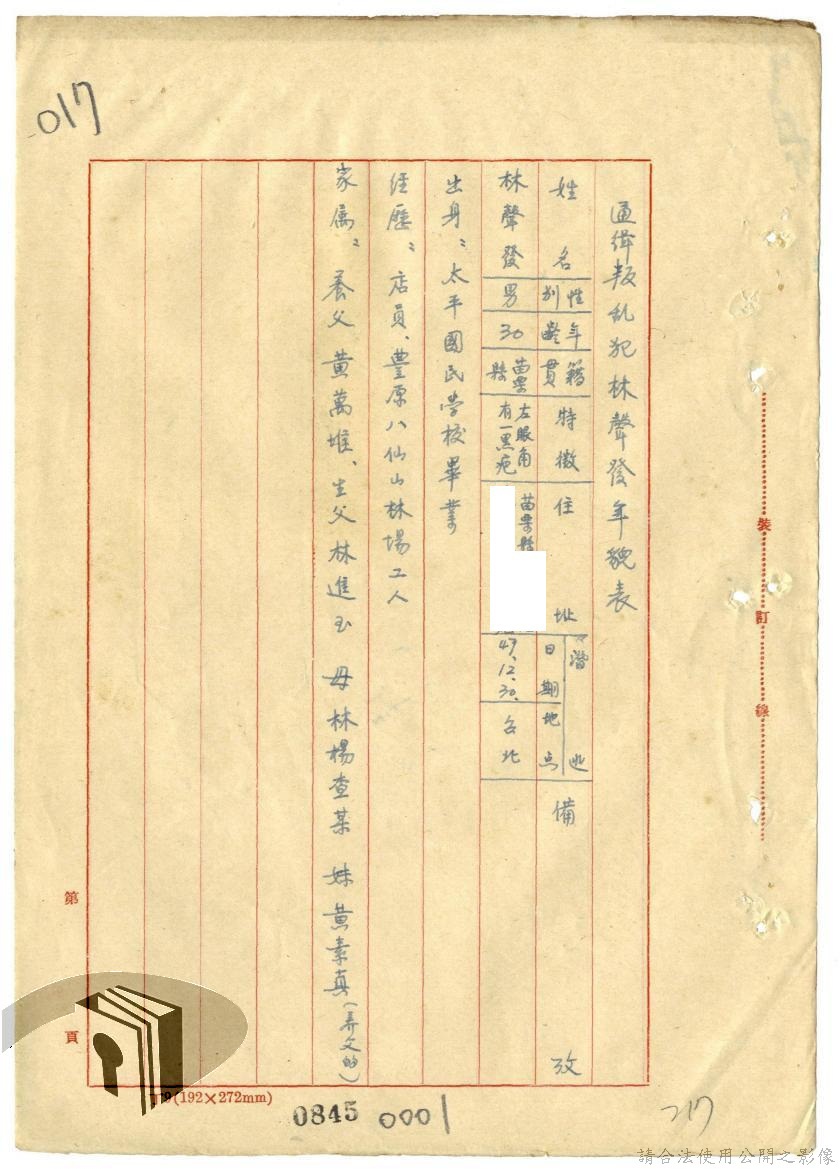 017
通緝叛乱犯林聲發年貌表
姓名 性別 年齡 籍貫 特徵 住址 潛逃 日期 地点 備攷
林聲發 男 30 苗栗縣 左眼角有一黑疤 苗栗縣 47.12.30. 台北
出身：太平國民学校畢業
經歷：店員、豐原八仙山林場工人
家屬：養父黃萬堆、生父林進玉 母林楊查某 妹黃素真(养父的)
裝訂線
第頁
(192×272mm)
0845 0001
217
請合法使用公開之影像